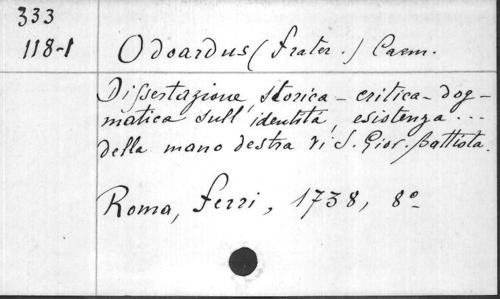 333
118-1
Odoardus (frater.) Caem.
Dissertazione storica-critica-dog-
matica sull'identità, esistenza...
della mano destra di S. Giov. Battista.
Roma, Ferri, 1738, 8º